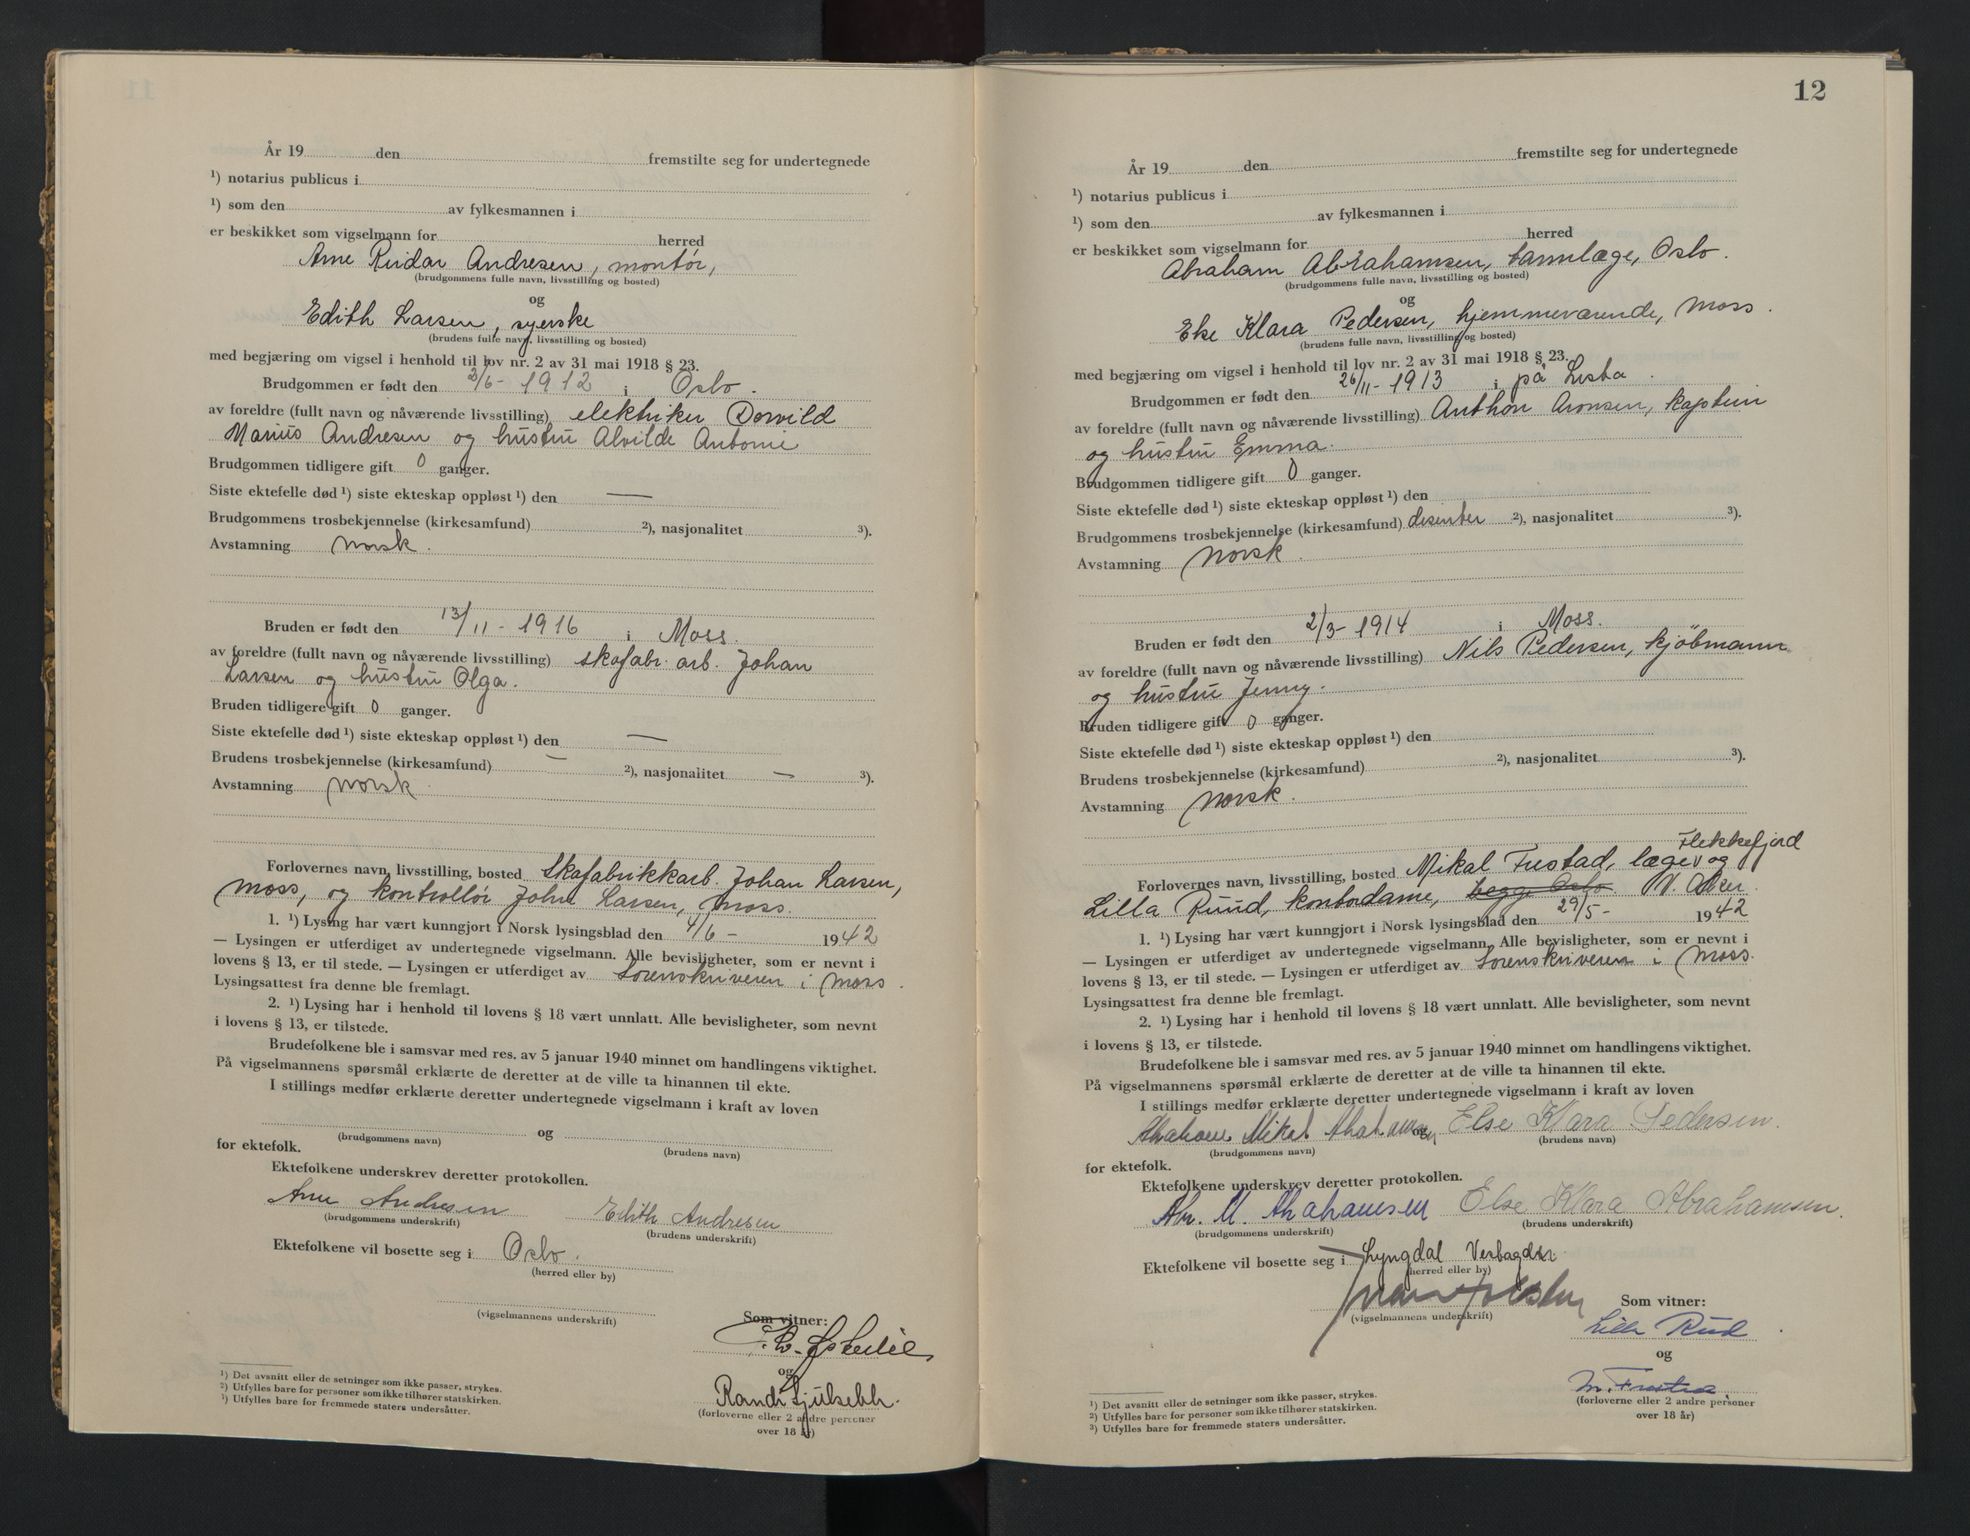 År 19 den fremstilte seg for undertegnede
¹) notarius publicus i
¹) som den av fylkesmannen i
er beskikket som vigselmann for herred
Arne Reidar Andresen, montör,
(brudgommens fulle navn, livsstilling og bosted)
og
Edith Larsen, syerske
(brudens fulle navn, livsstilling og bosted)
med begjæring om vigsel i henhold til lov nr. 2 av 31 mai 1918 § 23.
Brudgommen er født den 2/6 - 1912 i Oslo.
av foreldre (fullt navn og nåværende livsstilling) elektriker
Marius Andresen og hustru Alvilde Antonie
Brudgommen tidligere gift 0 ganger.
Siste ektefelle død ¹) siste ekteskap oppløst ¹) den —
Brudgommens trosbekjennelse (kirkesamfund) ²), nasjonalitet ³).
Avstamning norsk.
Bruden er født den 13/11 - 1916 i Moss.
av foreldre (fullt navn og nåværende livsstilling) skofabr. arb. Johan
Larsen og hustru Olga.
Bruden tidligere gift 0 ganger.
Siste ektefelle død ¹) siste ekteskap oppløst ¹) den —
Brudens trosbekjennelse (kirkesamfund) — ²), nasjonalitet — ³).
Avstamning norsk.
Forlovernes navn, livsstilling, bosted Skofabrikkarb. Johan Larsen,
Moss, og kontrollör John Larsen, Moss.
1. ¹) Lysing har vært kunngjort i Norsk lysingsblad den 4/6 - 1942
— Lysingen er utferdiget av undertegnede vigselmann. Alle bevisligheter, som er nevnt i
lovens § 13, er til stede. — Lysingen er utferdiget av Sorenskriveren i Moss.
Lysingsattest fra denne ble fremlagt.
2. ¹) Lysing har i henhold til lovens § 18 vært unnlatt. Alle bevisligheter, som nevnt
i lovens § 13, er tilstede.
Brudefolkene ble i samsvar med res. av 5 januar 1940 minnet om handlingens viktighet.
På vigselmannens spørsmål erklærte de deretter at de ville ta hinannen til ekte.
I stillings medfør erklærte deretter undertegnede vigselmann i kraft av loven
og
(brudgommens navn) (brudens navn)
for ektefolk.
Ektefolkene underskrev deretter protokollen.
Arne Andresen Edith Andresen
(brudgommens underskrift) (brudens underskrift)
Ektefolkene vil bosette seg i Oslo.
(herred eller by)
(vigselmannens underskrift)
Som vitner:
og
Randi
(forloverne eller 2 andre personer
over 18 år)
¹) Det avsnitt eller de setninger som ikke passer, strykes.
²) Utfylles bare for personer som ikke tilhører statskirken.
³) Utfylles bare for fremmede staters undersåtter.
12
År 19 den fremstilte seg for undertegnede
¹) notarius publicus i
¹) som den av fylkesmannen i
er beskikket som vigselmann for herred
Abraham Abrahamsen, tannlæge, Oslo.
(brudgommens fulle navn, livsstilling og bosted)
og
Else Klara Pedersen, hjemmeværende, Moss.
(brudens fulle navn, livsstilling og bosted)
med begjæring om vigsel i henhold til lov nr. 2 av 31 mai 1918 § 23.
Brudgommen er født den 26/11 - 1913 i på Lista.
av foreldre (fullt navn og nåværende livsstilling) Anthon Aronsen, kaptein
og hustru Emma.
Brudgommen tidligere gift 0 ganger.
Siste ektefelle død ¹) siste ekteskap oppløst ¹) den
Brudgommens trosbekjennelse (kirkesamfund) disenter ²), nasjonalitet ³).
Avstamning norsk.
Bruden er født den 2/3 - 1914 i Moss.
av foreldre (fullt navn og nåværende livsstilling) Nils Pedersen, kjöbmann
og hustru Jenny.
Bruden tidligere gift 0 ganger.
Siste ektefelle død ¹) siste ekteskap oppløst ¹) den
Brudens trosbekjennelse (kirkesamfund) ²), nasjonalitet ³).
Avstamning norsk.
Flekkefjord
Forlovernes navn, livsstilling, bosted Mikal Frestad, læge og
Lilla Ruud, kontordame, begge Oslo V. Aker.
1. ¹) Lysing har vært kunngjort i Norsk lysingsblad den 29/5 - 1942
— Lysingen er utferdiget av undertegnede vigselmann. Alle bevisligheter, som er nevnt i
lovens § 13, er til stede. — Lysingen er utferdiget av Sorenskriveren i Moss.
Lysingsattest fra denne ble fremlagt.
2. ¹) Lysing har i henhold til lovens § 18 vært unnlatt. Alle bevisligheter, som nevnt
i lovens § 13, er tilstede.
Brudefolkene ble i samsvar med res. av 5 januar 1940 minnet om handlingens viktighet.
På vigselmannens spørsmål erklærte de deretter at de ville ta hinannen til ekte.
I stillings medfør erklærte deretter undertegnede vigselmann i kraft av loven
Abraham Mikal Abrahamsen og Else Klara Pedersen.
(brudgommens navn) (brudens navn)
for ektefolk.
Ektefolkene underskrev deretter protokollen.
Abr. M. Abrahamsen Else Klara Abrahamsen.
(brudgommens underskrift) (brudens underskrift)
Ektefolkene vil bosette seg i Lyngdal Vestagder
(herred eller by)
(vigselmannens underskrift)
Som vitner:
Lilla Ruud
og
M. Frestad
(forloverne eller 2 andre personer
over 18 år)
¹) Det avsnitt eller de setninger som ikke passer, strykes.
²) Utfylles bare for personer som ikke tilhører statskirken.
³) Utfylles bare for fremmede staters undersåtter.